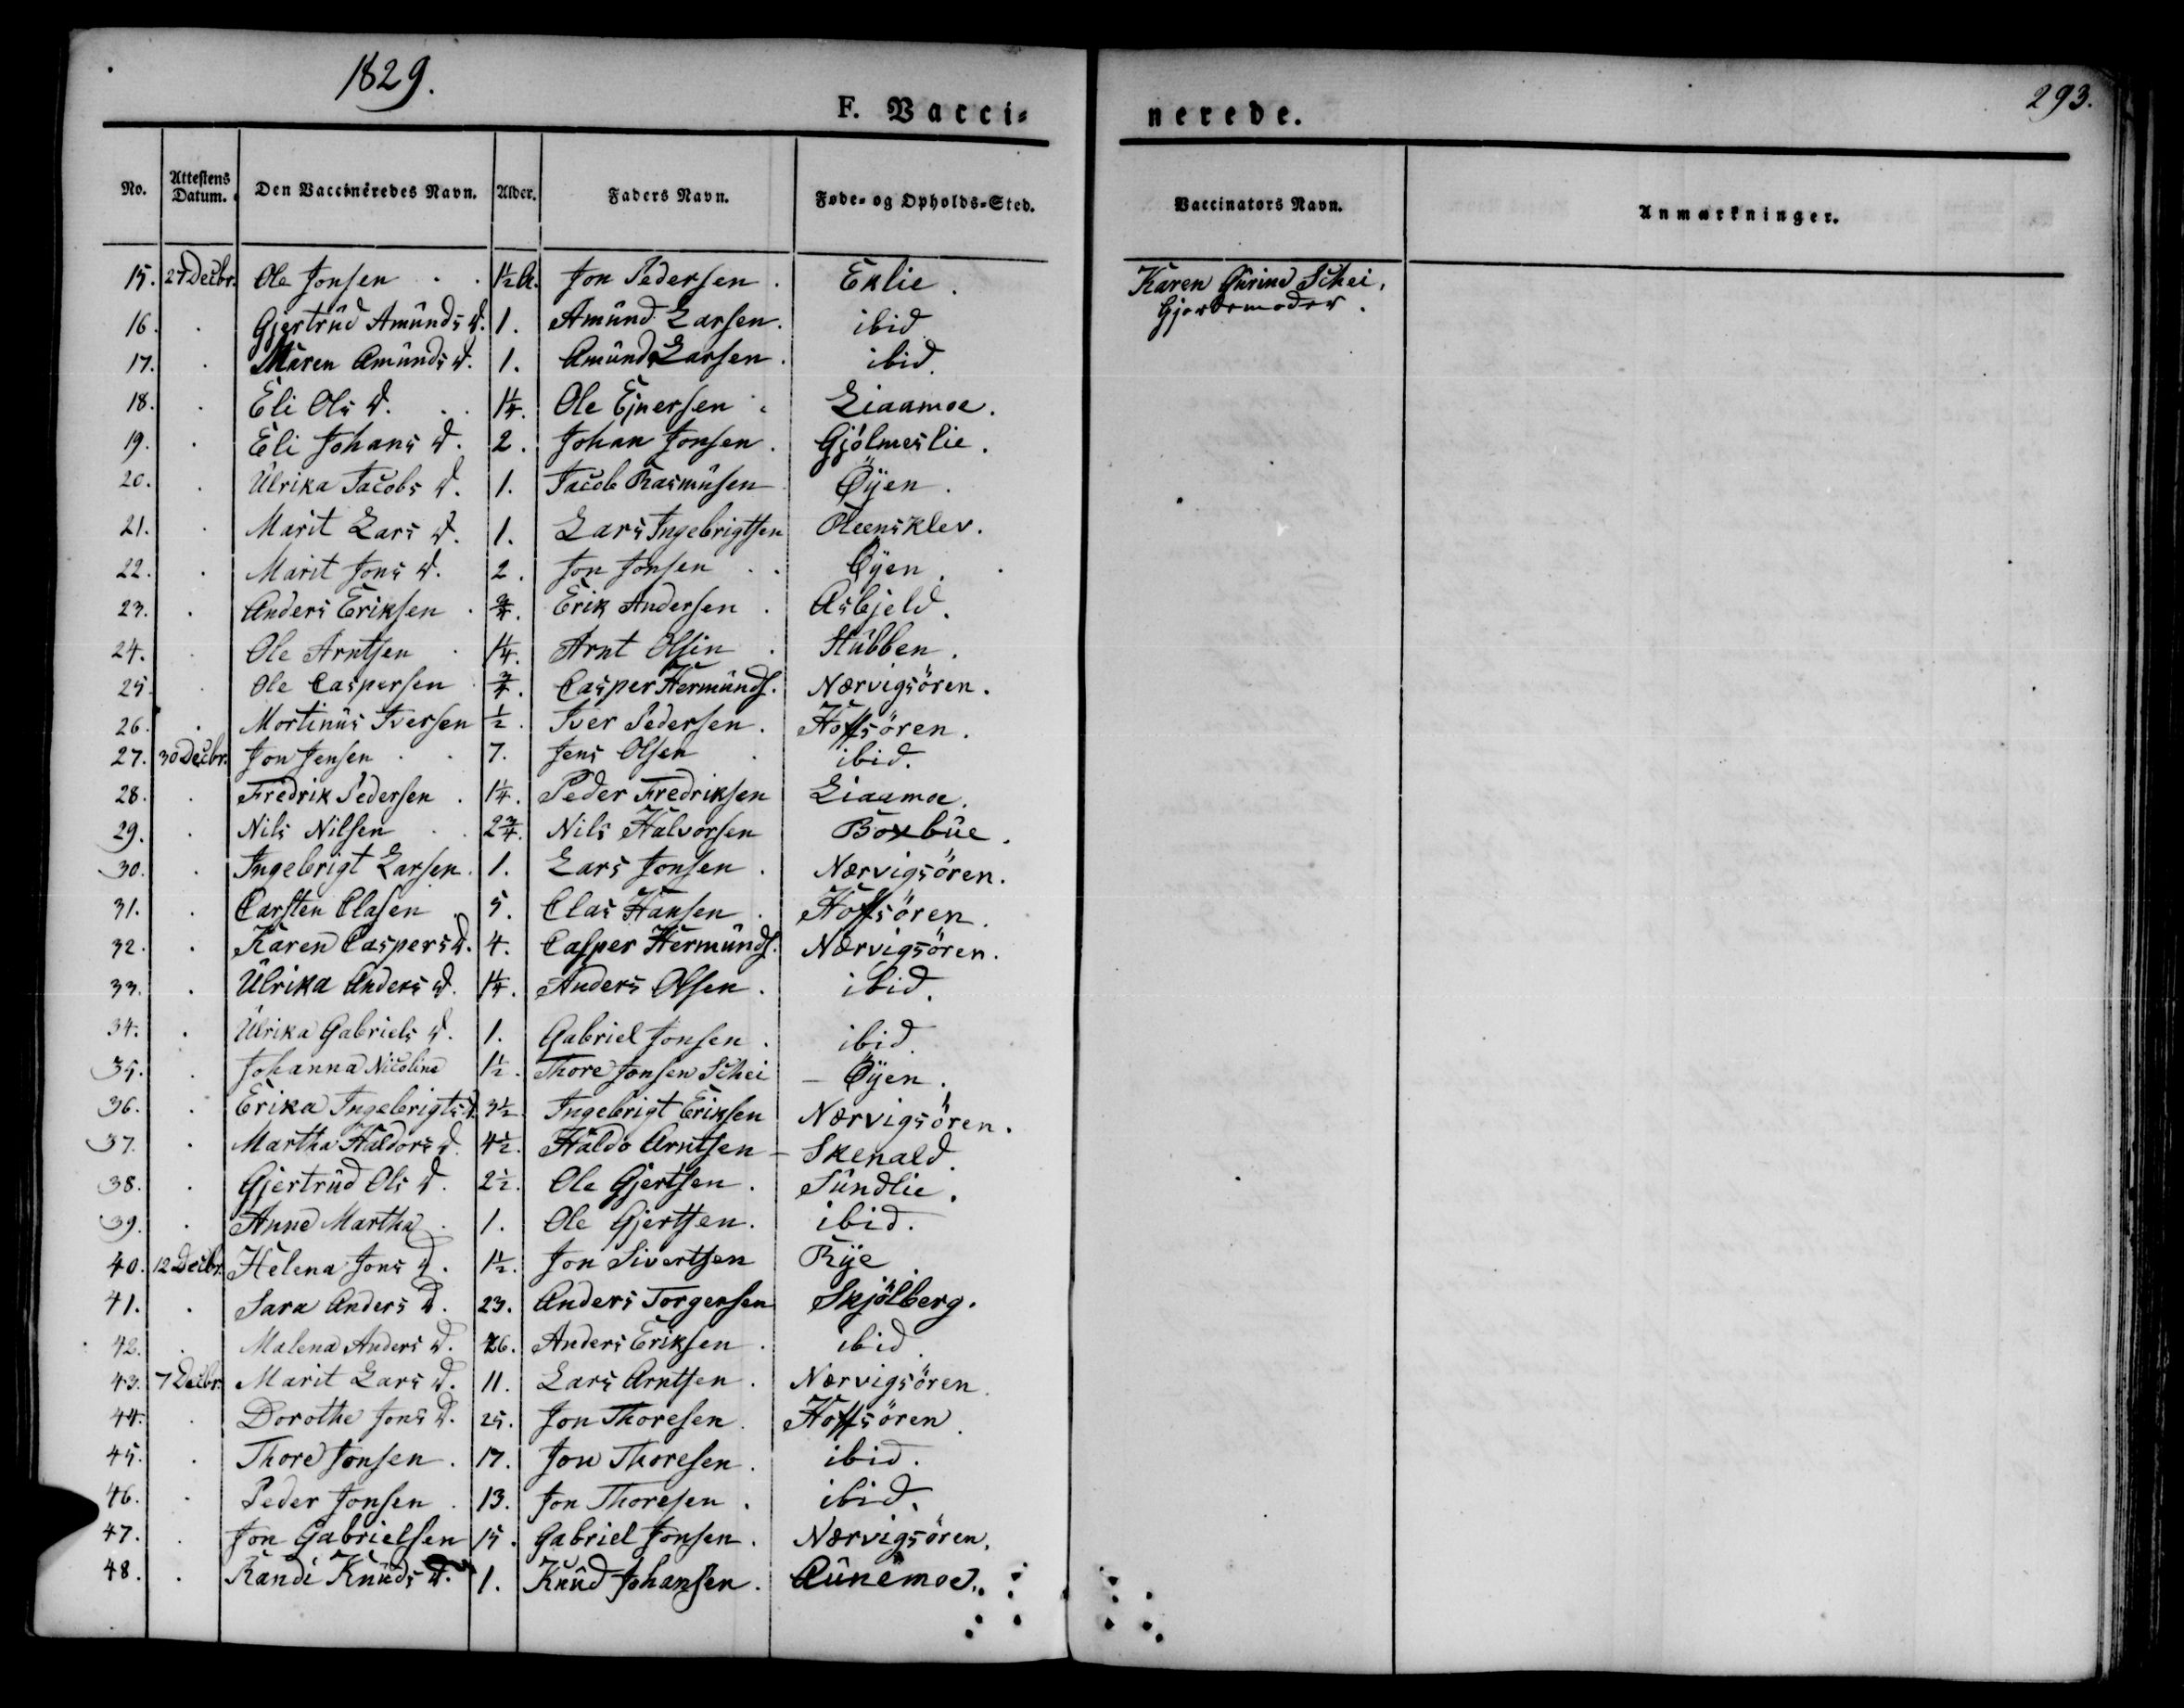 1829.
F. Vacci-
nerede.
293.
No. Attestens Datum. Den Vaccineredes Navn. Alder. Faders Navn. Føde- og Opholds-Sted. Vaccinators Navn. Anmærkninger.
15. 27 Decbr. Ole Jonsen . . 1½ A. Jon Pedersen . Eklie . Karen Gurine Schei,
16. . Gjertrud Amunds D. 1. Amund Larsen. ibid Gjordemoder.
17. . Maren Amunds D. 1. Amund Larsen. ibid.
18. . Eli Ols D. . . 1¼. Ole Ejnersen . Liaamoe.
19. . Eli Johans D. 2. Johan Jonsen. Gjölmeslie.
20. . Ulrika Jacobs D. 1. Jacob Rasmusen Öyen.
21. . Marit Lars D. 1. Lars Ingebrigtsen Oleensklev.
22. . Marit Jons D. 2. Jon Jonsen . . Öyen.
23. . Anders Eriksen . ¾. Erik Andersen . Asbjeld.
24. . Ole Arntsen . 1¼. Arnt Olsin . Stubben.
25. . Ole Caspersen . ¾. Casper Hermunds. Nærvigsören.
26. . Mortinus Iversen ½. Iver Pedersen. Hoffsören.
27. 30 Decbr. Jon Jensen . . 7. Jens Olsen . ibid.
28. . Fredrik Pedersen . 1¼. Peder Fredriksen Liaamoe.
29. . Nils Nilsen . . 2¾. Nils Halvorsen Boxbue.
30. . Ingebrigt Larsen. 1. Lars Jonsen . Nærvigsören.
31. . Carsten Clasen . 5. Clas Hansen . Hoffsören.
32. . Karen Caspers D. 4. Casper Hermunds. Nærvigsören.
33. . Ulrika Anders D. 1¼. Anders Olsen . ibid.
34. . Ulrika Gabriels D. 1. Gabriel Jonsen . ibid.
35. . Johanna Nicolina 1½. Thore Jonsen Schei – Öyen.
36. . Erika Ingebrigts D. 3½. Ingebrigt Eriksen Nærvigsören.
37. . Martha Haldors D. 4½. Haldo Arntsen – Skenald.
38. . Gjertrud Ols D. 2½. Ole Gjertsen . Sundlie.
39. . Anne Martha . 1. Ole Gjertsen. ibid.
40. 12 Decbr. Helena Jons D. 1½. Jon Sivertsen Rye
41. . Sara Anders D. 23. Anders Torgersen Skjölberg.
42. . Malena Anders D. 26. Anders Eriksen . ibid.
43. 7 Decbr. Marit Lars D. 11. Lars Arntsen . Nærvigsören.
44. . Dorothe Jons D. 25. Jon Thoresen . Hoffsören.
45. . Thore Jonsen . 17. Jon Thoresen . ibid.
46. . Peder Jonsen . 13. Jon Thoresen . ibid.
47. . Jon Gabrielsen 15. Gabriel Jonsen . Nærvigsören.
48. . Randi Knuds D. 1. Knud Johansen . Aunemoe.